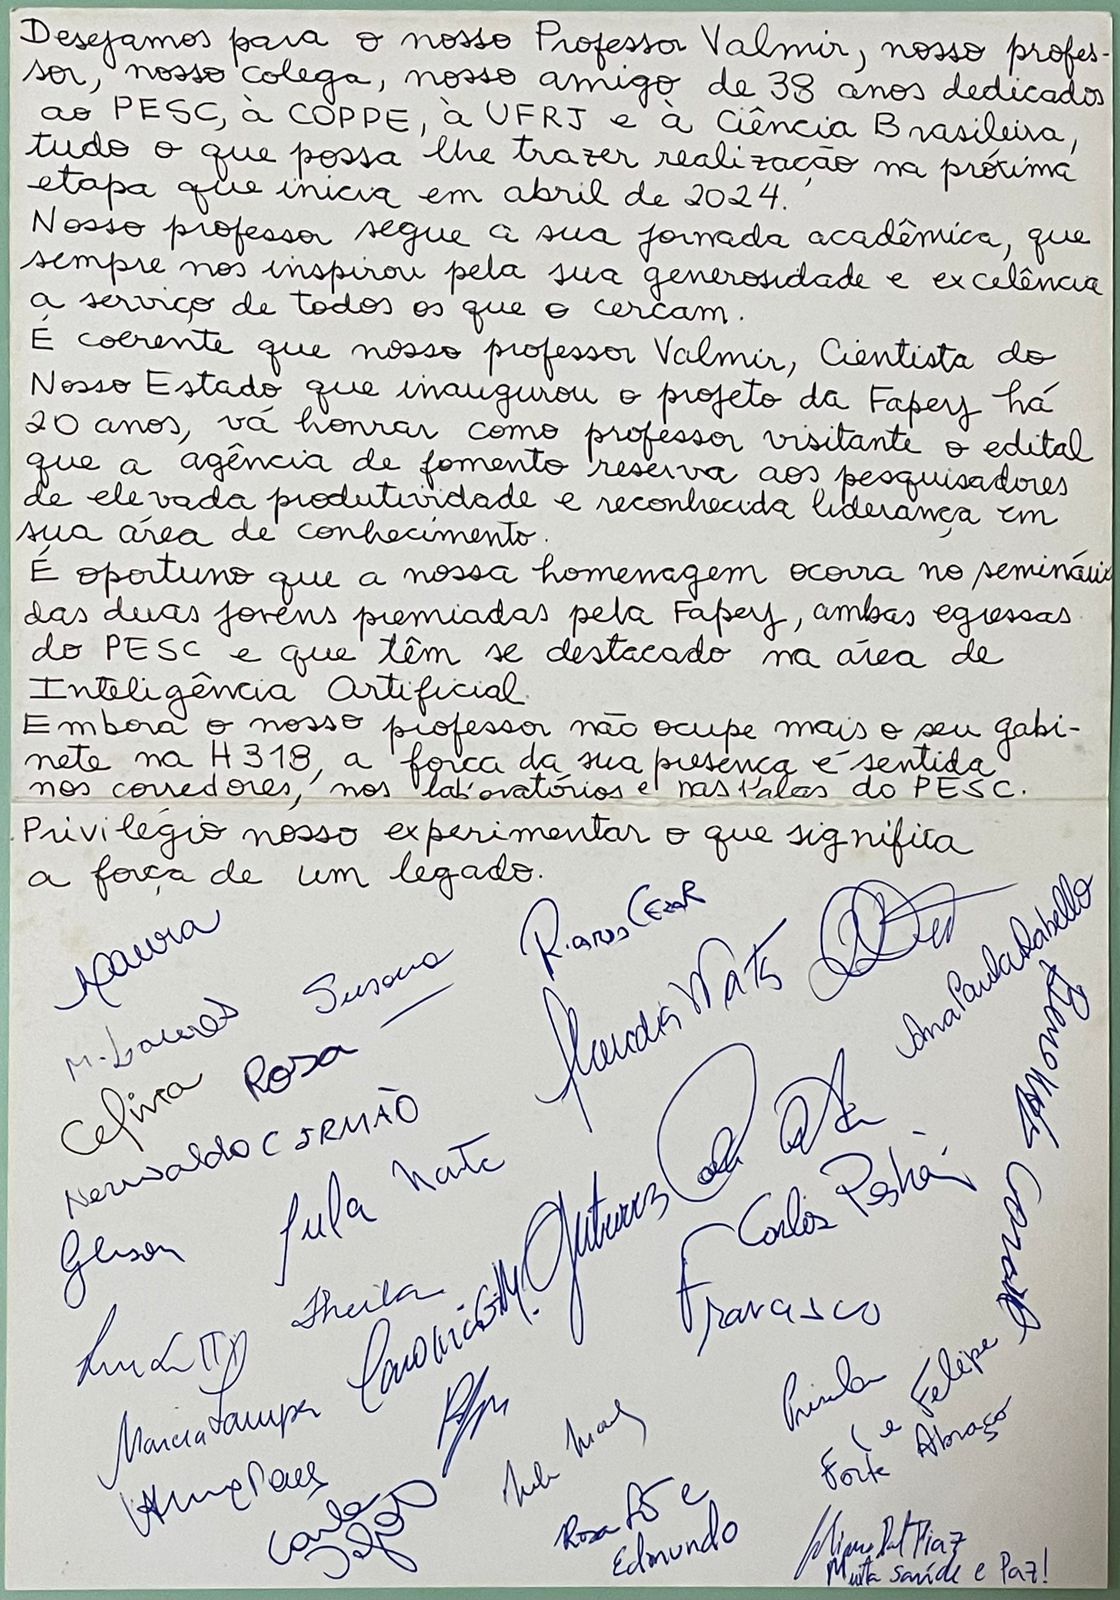 Desejamos para o nosso Professor Valmir, nosso profes-
sor, nosso colega, nosso amigo de 38 anos dedicados
ao PESC, à COPPE, à UFRJ e à Ciência Brasileira,
tudo o que possa lhe trazer realização na próxima
etapa que inicia em abril de 2024.
Nosso professor segue a sua jornada acadêmica, que
sempre nos inspirou pela sua generosidade e excelência
a serviço de todos os que o cercam.
É coerente que nosso professor Valmir, Cientista do
Nosso Estado que inaugurou o projeto da Faperj há
20 anos, vá honrar como professor visitante o edital
que a agência de fomento reserva aos pesquisadores
de elevada produtividade e reconhecida liderança em
sua área de conhecimento.
É oportuno que a nossa homenagem ocorra no seminário
das duas jovens premiadas pela Faperj, ambas egressas
do PESC e que têm se destacado na área de
Inteligência Artificial.
Embora o nosso professor não ocupe mais o seu gabi-
nete na H318, a força da sua presença é sentida
nos corredores, nos laboratórios e nas salas do PESC.
Privilégio nosso experimentar o que significa
a força de um legado.
Maura
Susana
Ricardo Cezar
Claudia
Ana Paula Rabello
Rosa
IRMÃO
Carlos
Gleison
Sheila
Francisco
Marcia
Priscila
e Felipe
Forte Abraço
Carla
Rosa
e
Edmundo
Muita saúde e Paz!